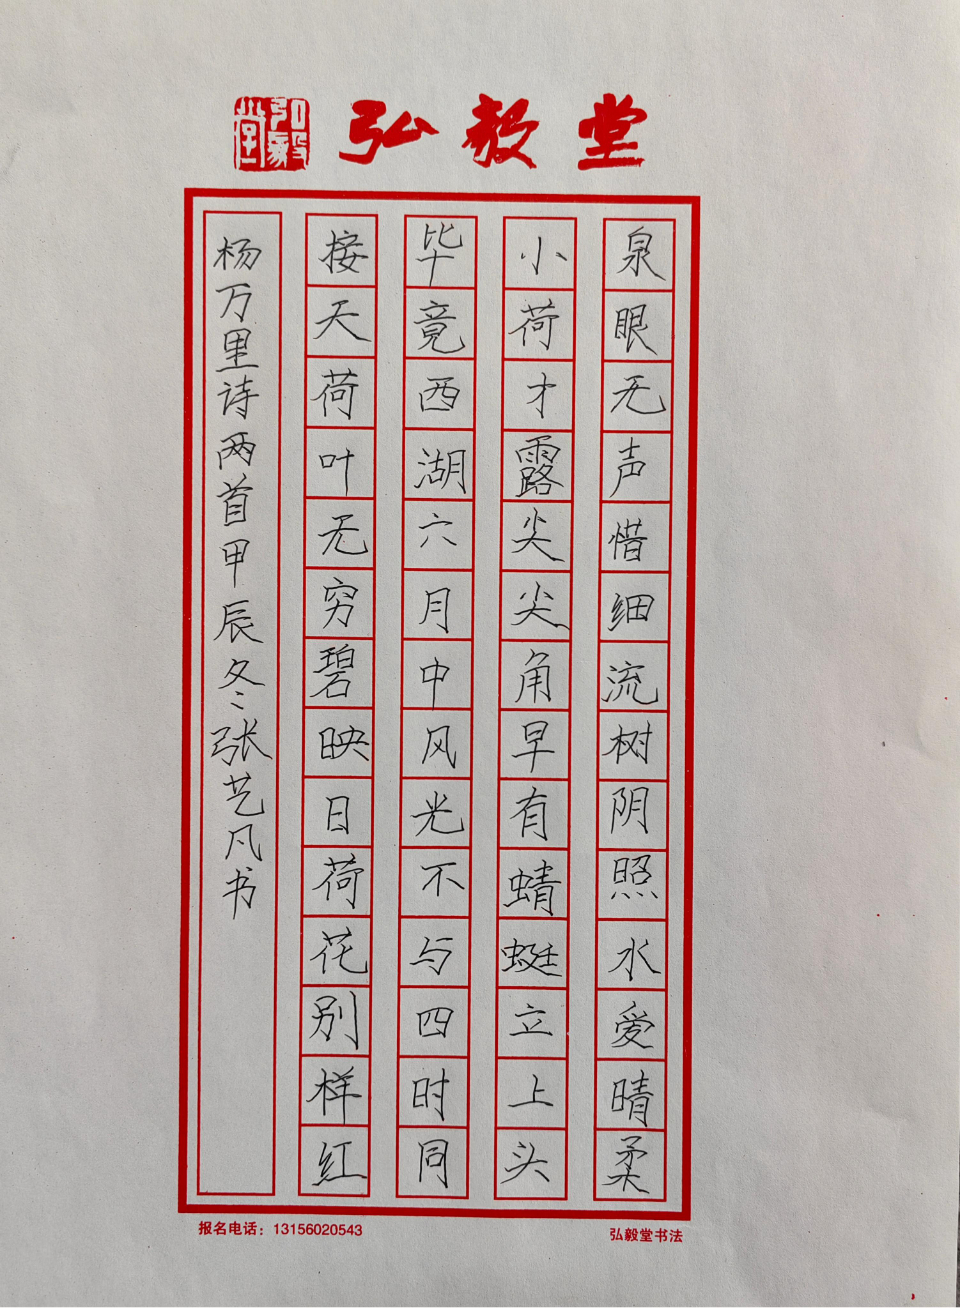 弘毅堂
弘毅堂
泉眼无声惜细流树阴照水爱晴柔
小荷才露尖尖角早有蜻蜓立上头
毕竟西湖六月中风光不与四时同
接天荷叶无穷碧映日荷花别样红
杨万里诗两首甲辰冬张艺凡书
报名电话：13156020543
弘毅堂书法